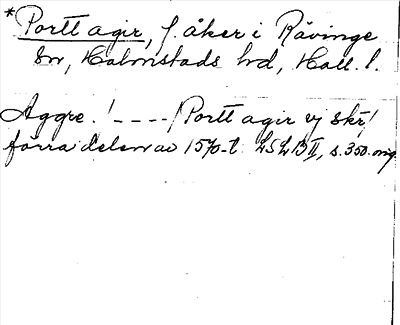 *Portt agir, f. åker i Rävinge
sn, Halmstads hd, Hall. l.
Aggre. ! - - - - / Portt agir vj skr /
förra delen av 1570-t. LSLB II, s. 350. orig.